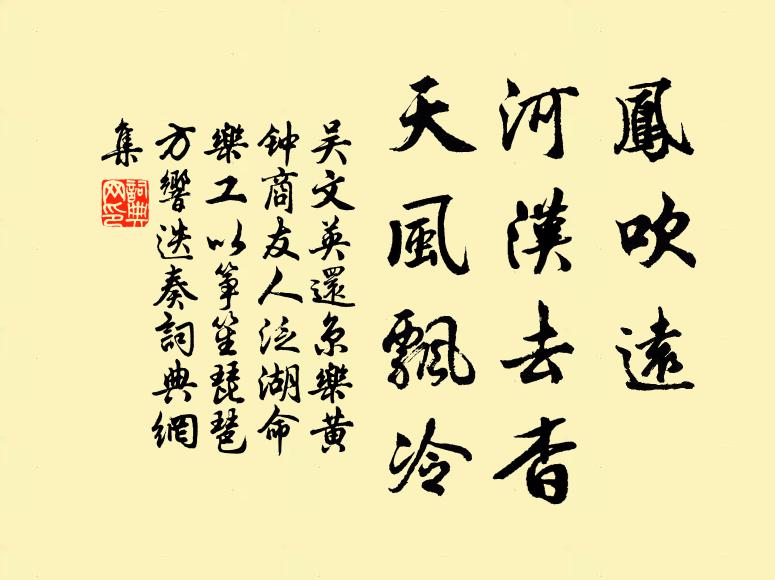 鳳吹遠
河漢去杳
天風飄冷
吴文英還京樂黄
钟商友人泛湖命
樂工以筝笙琵琶
方響迭奏詞典網
集
詞典
网印